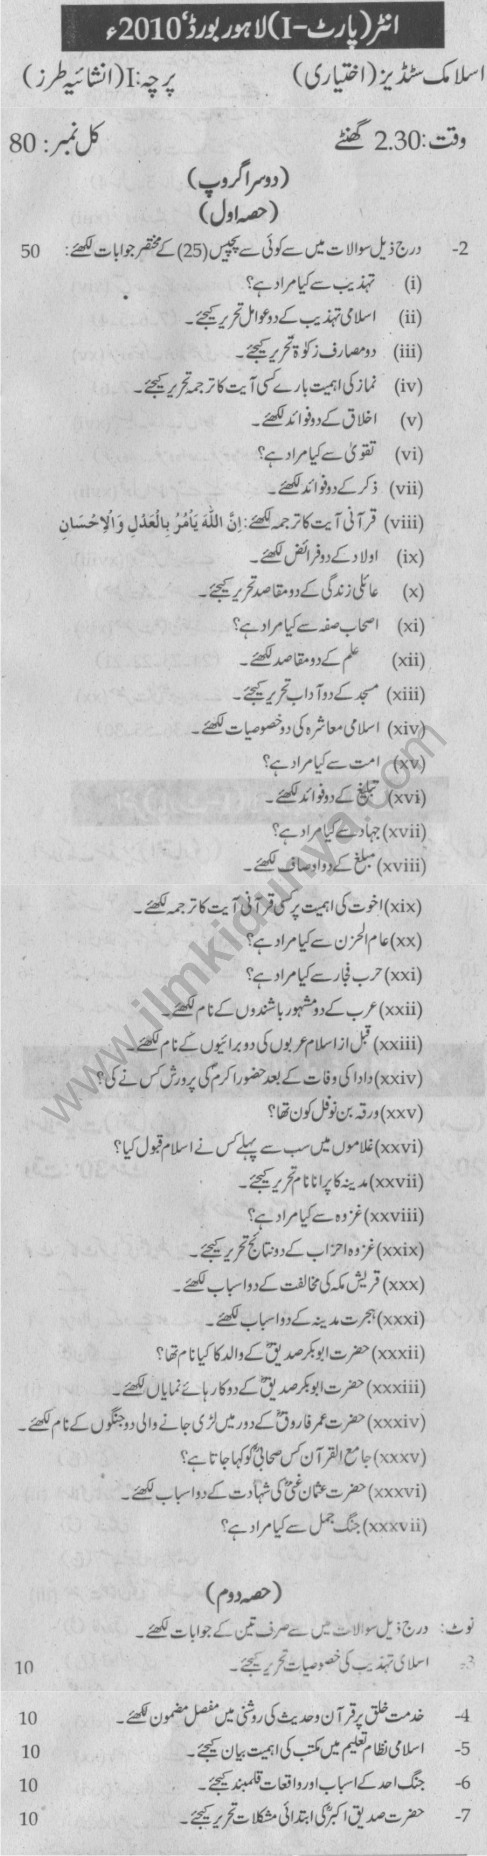 انٹر (پارٹ-I) لاہور بورڈ، 2010ء
اسلامک سٹڈیز (اختیاری) پرچہ: I (انشائیہ طرز)
وقت: 2.30 گھنٹے کل نمبر: 80
(دوسرا گروپ)
(حصہ اول)
2- درج ذیل سوالات میں سے کوئی سے پچیس (25) کے مختصر جوابات لکھئے: 50
(i) تہذیب سے کیا مراد ہے؟
(ii) اسلامی تہذیب کے دو عوامل تحریر کیجئے۔
(iii) دو مصارف زکوٰۃ تحریر کیجئے۔
(iv) نماز کی اہمیت بارے کسی آیت کا ترجمہ تحریر کیجئے۔
(v) اخلاق کے دو فوائد لکھئے۔
(vi) تقویٰ سے کیا مراد ہے؟
(vii) ذکر کے دو فوائد لکھئے۔
(viii) قرآنی آیت کا ترجمہ لکھئے: اِنَّ اللّٰهَ يَاْمُرُ بِالْعَدْلِ وَالْاِحْسَانِ
(ix) اولاد کے دو فرائض لکھئے۔
(x) عائلی زندگی کے دو مقاصد تحریر کیجئے۔
(xi) اصحاب صفہ سے کیا مراد ہے؟
(xii) علم کے دو مقاصد لکھئے۔
(xiii) مسجد کے دو آداب تحریر کیجئے۔
(xiv) اسلامی معاشرہ کی دو خصوصیات لکھئے۔
(xv) امت سے کیا مراد ہے؟
(xvi) تبلیغ کے دو فوائد لکھئے۔
(xvii) جہاد سے کیا مراد ہے؟
(xviii) مبلغ کے دو اوصاف لکھئے۔
(xix) اخوت کی اہمیت پر کسی قرآنی آیت کا ترجمہ لکھئے۔
(xx) عام الحزن سے کیا مراد ہے؟
(xxi) حرب فجار سے کیا مراد ہے؟
(xxii) عرب کے دو مشہور باشندوں کے نام لکھئے۔
(xxiii) قبل از اسلام عربوں کی دو برائیوں کے نام لکھئے۔
(xxiv) دادا کی وفات کے بعد حضور اکرمؐ کی پرورش کس نے کی؟
(xxv) ورقہ بن نوفل کون تھا؟
(xxvi) غلاموں میں سب سے پہلے کس نے اسلام قبول کیا؟
(xxvii) مدینہ کا پرانا نام تحریر کیجئے۔
(xxviii) غزوہ سے کیا مراد ہے؟
(xxix) غزوہ احزاب کے دو نتائج تحریر کیجئے۔
(xxx) قریش مکہ کی مخالفت کے دو اسباب لکھئے۔
(xxxi) ہجرت مدینہ کے دو اسباب لکھئے۔
(xxxii) حضرت ابوبکر صدیقؓ کے والد کا کیا نام تھا؟
(xxxiii) حضرت ابوبکر صدیقؓ کے دو کارہائے نمایاں لکھئے۔
(xxxiv) حضرت عمر فاروقؓ کے دور میں لڑی جانے والی دو جنگوں کے نام لکھئے۔
(xxxv) جامع القرآن کس صحابیؓ کو کہا جاتا ہے؟
(xxxvi) حضرت عثمان غنیؓ کی شہادت کے دو اسباب لکھئے۔
(xxxvii) جنگ جمل سے کیا مراد ہے؟
(حصہ دوم)
نوٹ: درج ذیل سوالات میں سے صرف تین کے جوابات لکھئے۔
3- اسلامی تہذیب کی خصوصیات تحریر کیجئے۔ 10
4- خدمت خلق پر قرآن و حدیث کی روشنی میں مفصل مضمون لکھئے۔ 10
5- اسلامی نظام تعلیم میں مکتب کی اہمیت بیان کیجئے۔ 10
6- جنگ احد کے اسباب اور واقعات قلمبند کیجئے۔ 10
7- حضرت صدیق اکبرؓ کی ابتدائی مشکلات تحریر کیجئے۔ 10
www.ilmkidunya.com